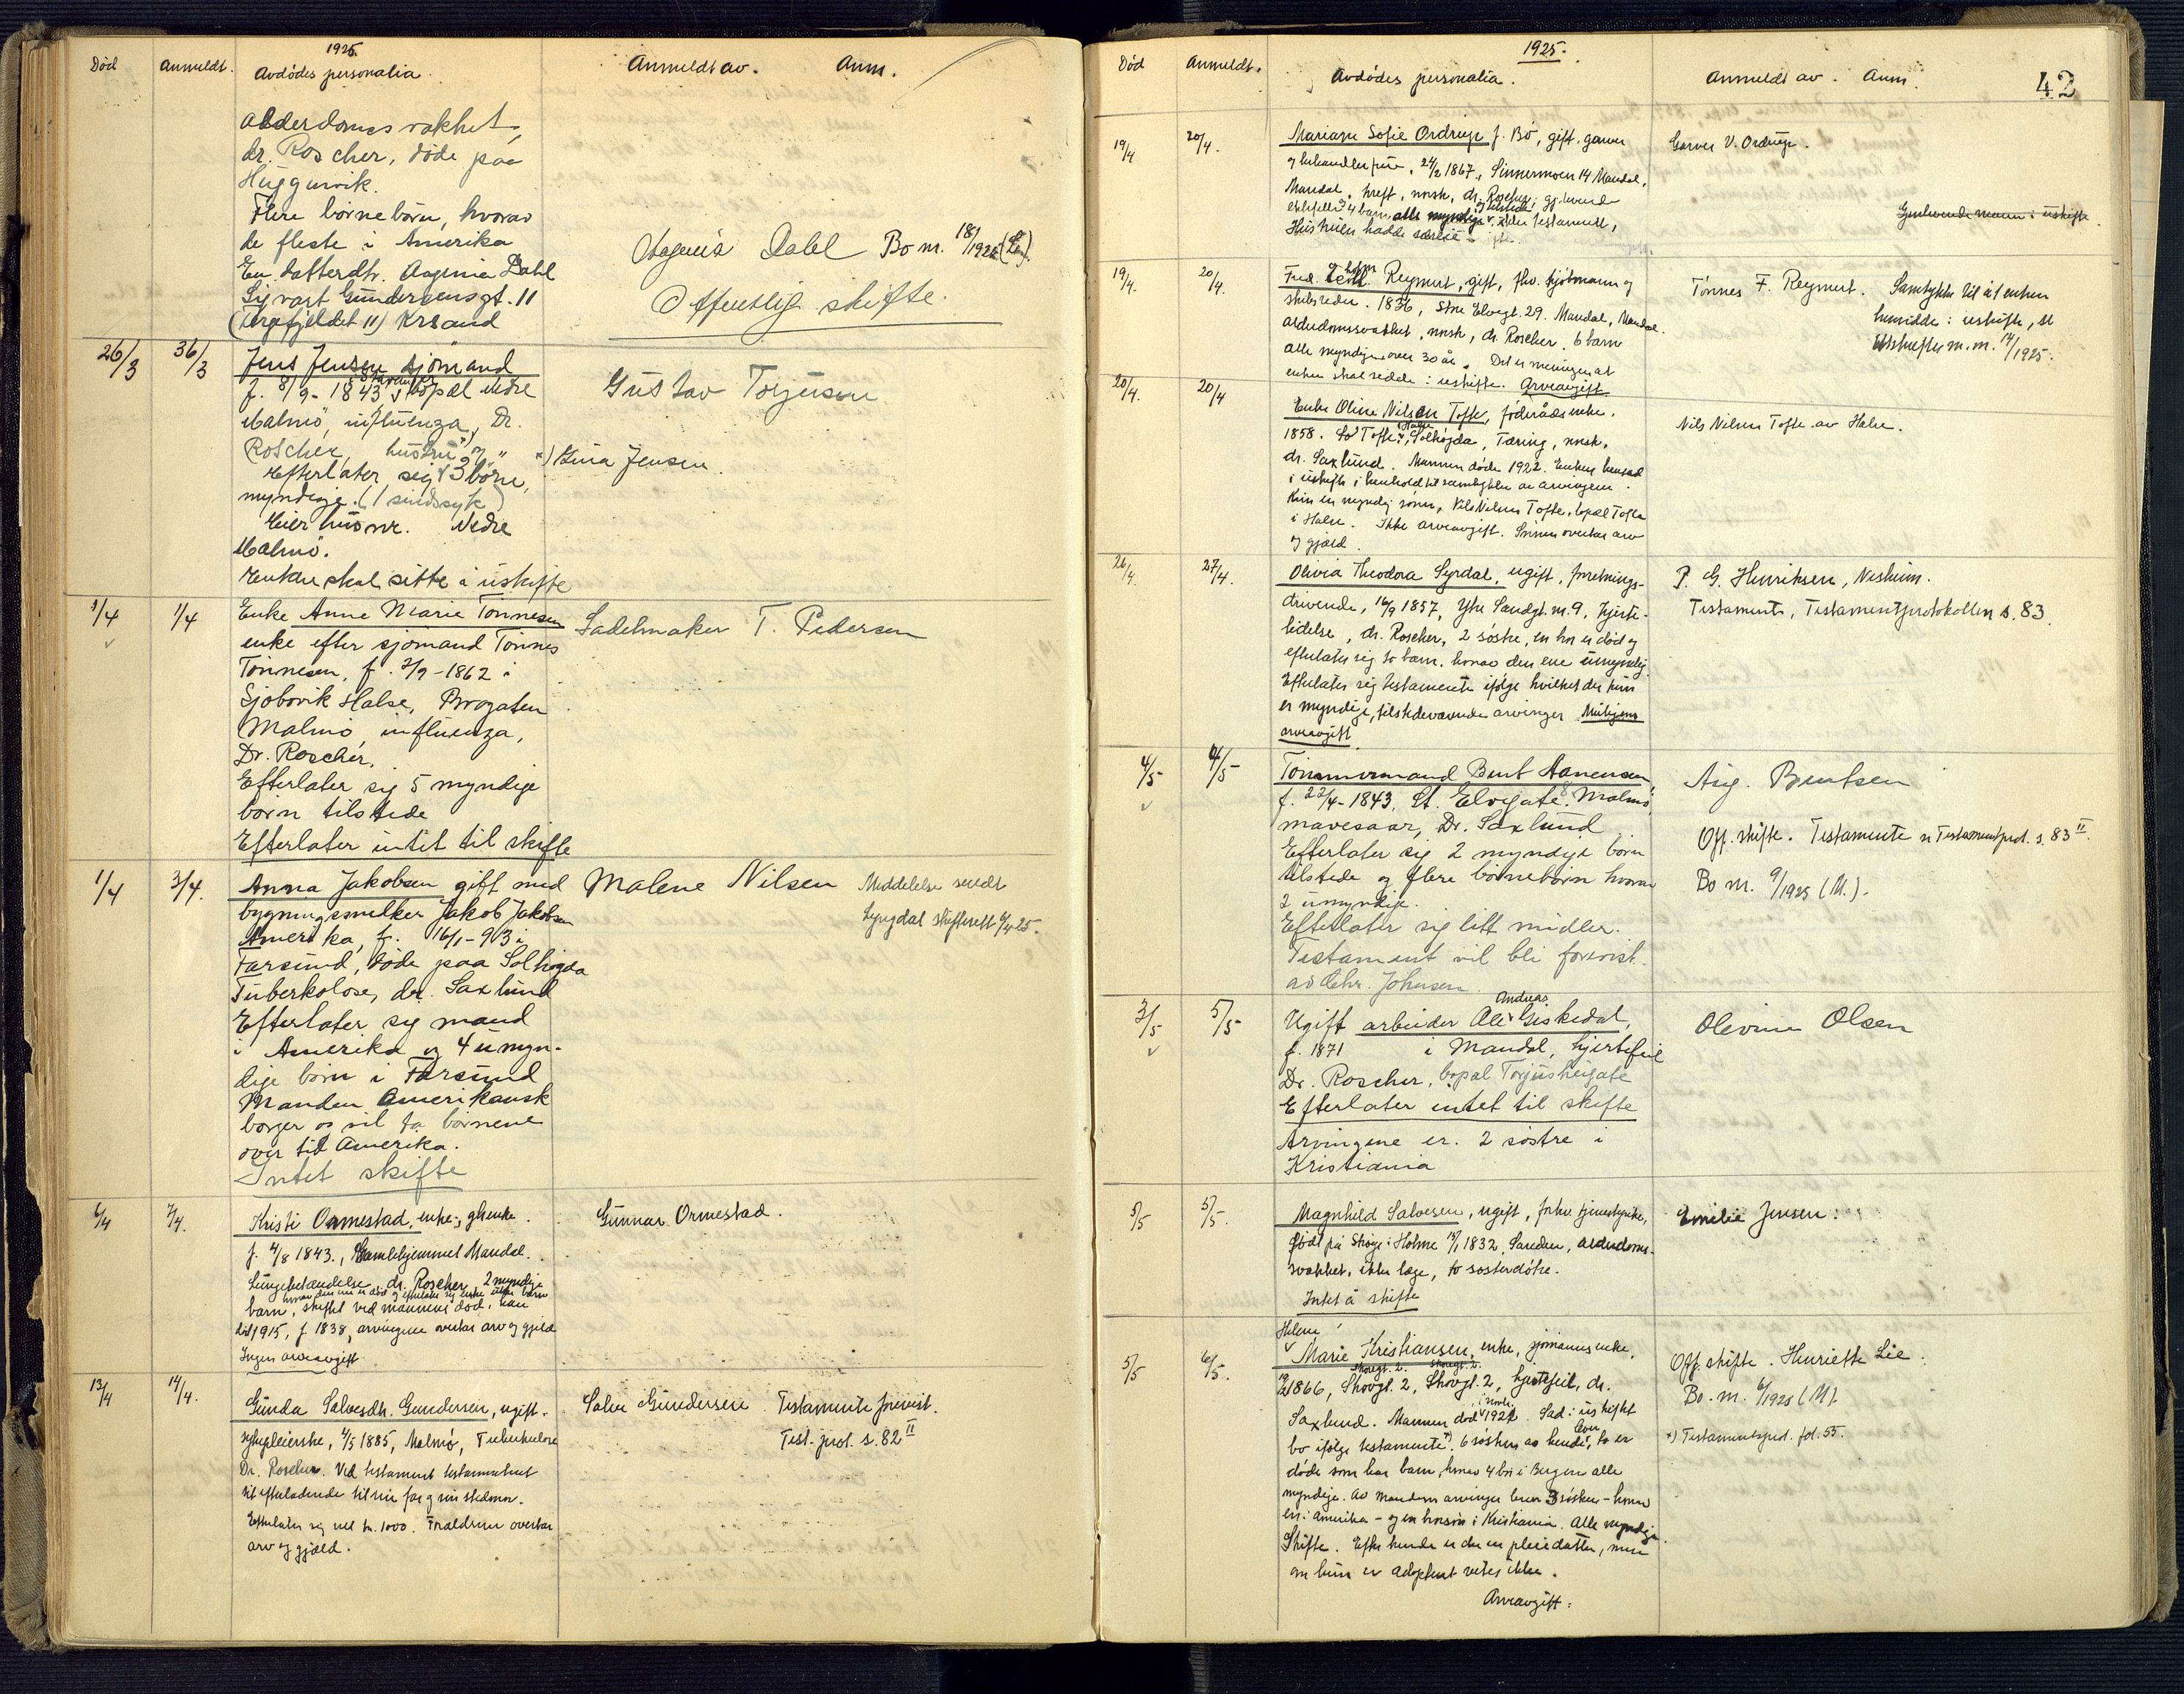 1925.
Død Anmeldt. Avdødes personalia. Anmeldt av. Anm.
alderdomssvakhet,
dr. Roscher, døde paa
Huggenvik.
Flere børnebørn, hvorav
de fleste i Amerika
En datterdtr. Aagenia Dahl
Sigvart Gundersensgt. 11
11) Krsand
Aagenia Dahl Bo nr. 18/1925
Offentlig skifte.
26/3 36/3 Jens Jensen sjømand
f. 8/9-1843 i Stavanger bopæl nedre
Malmø, influenza, Dr.
Roscher, hustru og
Efterlater sig 3 børn,
myndige. (1 sindssyk)
Eier hus nr. Nedre
Malmø.
Enken skal sitte i uskifte
Gustav Torjusen
x) Gina Jensen.
1/4 1/4 Enke Anne Marie Tønnesen
enke efter sjømand Tønnes
Tønnesen, f. 2/9-1862 i
Sjøbovik Halse, Brogaten
Malmø influenza,
Dr. Roscher.
Efterlater sig 5 myndige
børn tilstede
Efterlater intet til skifte
Sadelmaker T. Pedersen
1/4 3/4. Anna Jakobsen gift med
bygningssnekker Jakob Jakobsen
Amerika, f. 16/1-93 i
Farsund, døde paa Solhøgda
Tuberkolose, dr. Saxlund
Efterlater sig mand
i Amerika og 4 umyn-
dige børn i Farsund
Manden Amerikansk
borger og vil ta børnene
over til Amerika.
Intet skifte
Malene Nilsen Meddelelse sendt
Lyngdal skifterett 6/4 25.
6/4 7/4. Kristi Ormestad, enke,
f. 4/8 1843., Gamlehjemmet Mandal.
Lungebetændelse, dr. Roscher, 2 myndige
hvorav den ene er død og efterlater sig enke uten barn
barn, skiftet ved mannens død, han
død 1915, f. 1838, arvingene overtar arv og gjeld
Ingen arveavgift
Gunnar Ormestad.
13/4 14/4. Gunda Salvesdtr. Gundersen, ugift.
sykepleierske, 4/5 1885, Malmø, Tuberkulose
Dr. Roscher. Ved testament testamentert
sit efterladende til sin far og sin stedmor.
Efterlater sig vel kr. 1000. Foraldrene overtar
arv og gjæld.
Salve Gundersen Testamente forevist.
Test. prot. s. 82 II
42
1925.
Død Anmeldt. Avdødes personalia. Anmeldt av. Anm.
19/4 20/4. Mariane Sofie Ordrup f. Bø, gift, garver
og lærhandlerfrue, 24/2 1867, Sinnermoen 14 Mandal,
Mandal, kreft, norsk, dr. Roscher, gjenlevende
ektefelle og 4 barn alle myndige, uten testamente,
Hustruen hadde særeie
Garver V. Ordrup.
Gjenlevende mann i uskifte
19/4. 20/4. Reymert, gift, fhv. sjømann og
skibsreder. 1836, Store Elvegt. 29. Mandal, Mandal.
alderdomssvakhet, norsk, dr. Roscher. 6 barn
alle myndige over 30 år. Det er meningen at
enken skal sidde i uskifte. Arveavgift
Tønnes F. Reymert. Samtykke til at enken
hensidder i uskifte, se
Utskrifter m.m. 14/1925.
20/4. 20/4 Enke Oline Nilsen Tofte, føderådsenke.
1858. Tofte, Halse, Solhøgda, Tæring, norsk,
dr. Saxlund. Mannen døde 1922. Enken hensad
i uskifte i henhold til samtykke av arvingene.
Kun en myndig sønn, Nils Nilsen Tofte, bopæl Tofte
i Halse. Ikke arveavgift. Sønnen overtar arv
og gjæld.
Nils Nilsen Tofte av Halse.
26/4. 27/4. Olivia Theodora Syrdal, ugift, forretnings-
drivende, 16/9 1857, Ytre Sandgt. nr. 9, hjerte-
lidelse, dr. Roscher, 2 søstre, en bror er død og
efterlater sig to barn, hvorav den ene umyndig.
Efterlater sig testamente ifølge hvilket der kun
er myndige, tilstedeværende arvinger Muligens
arveavgift
P. G. Henriksen, Nesheim.
Testamente, Testamentprotokollen s. 83.
4/5 4/5 Tømmermand Bent Hanensen,
f. 22/4-1843. St. Elvegate 8. Malmø,
mavesaar, Dr. Saxlund
Efterlater sig 2 myndige børn
tilstede og flere børnebørn hvorav
2 umyndige.
Efterlater sig litt midler.
Testament vil bli forevist
av Chr. Johnsen.
Aug. Bentsen
Off. skifte. Testamente Testamentprot. s. 83 II.
Bo nr. 9/1925 (M.).
3/5 5/5 Ugift arbeider Ole Andreas Giskedal,
f. 1871 i Mandal, hjertefeil
Dr. Roscher, bopæl Torjusheigate
Efterlater intet til skifte
Arvingene er. 2 søstre i
Kristiania
Olevine Olsen
5/5 5/5. Magnhild Salvesen, ugift, forhv. tjenestepike,
født på Skoge i Holme 15/1 1832, alderdoms-
svakhet, ikke læge, to søsterdøtre.
Intet å skifte
Emilie Jensen.
5/5 6/5. Helene Marie Kristiansen, enke, sjømannsenke,
1866, Skovgt. 2, Skovgt. 2, hjertefeil, dr.
Saxlund. Mannen død 1921. Sad i uskiftet
bo ifølge testamente x). 6 søsken av hende, to er
døde som har barn, hvorav 4 bor i Bergen alle
myndige. Av mandens arvinger lever 3 søsken - hvorav
en i Amerika - og en brorsøn i Kristiania. Alle myndige.
Skifte. Efter hende er der en pleiedatter, men
om hun er adoptert vites ikke.
Arveavgift.
Off. skifte. Henriette Lie.
Bo. nr. 6/1925 (M).
x) Testamentsprot. fol. 55.